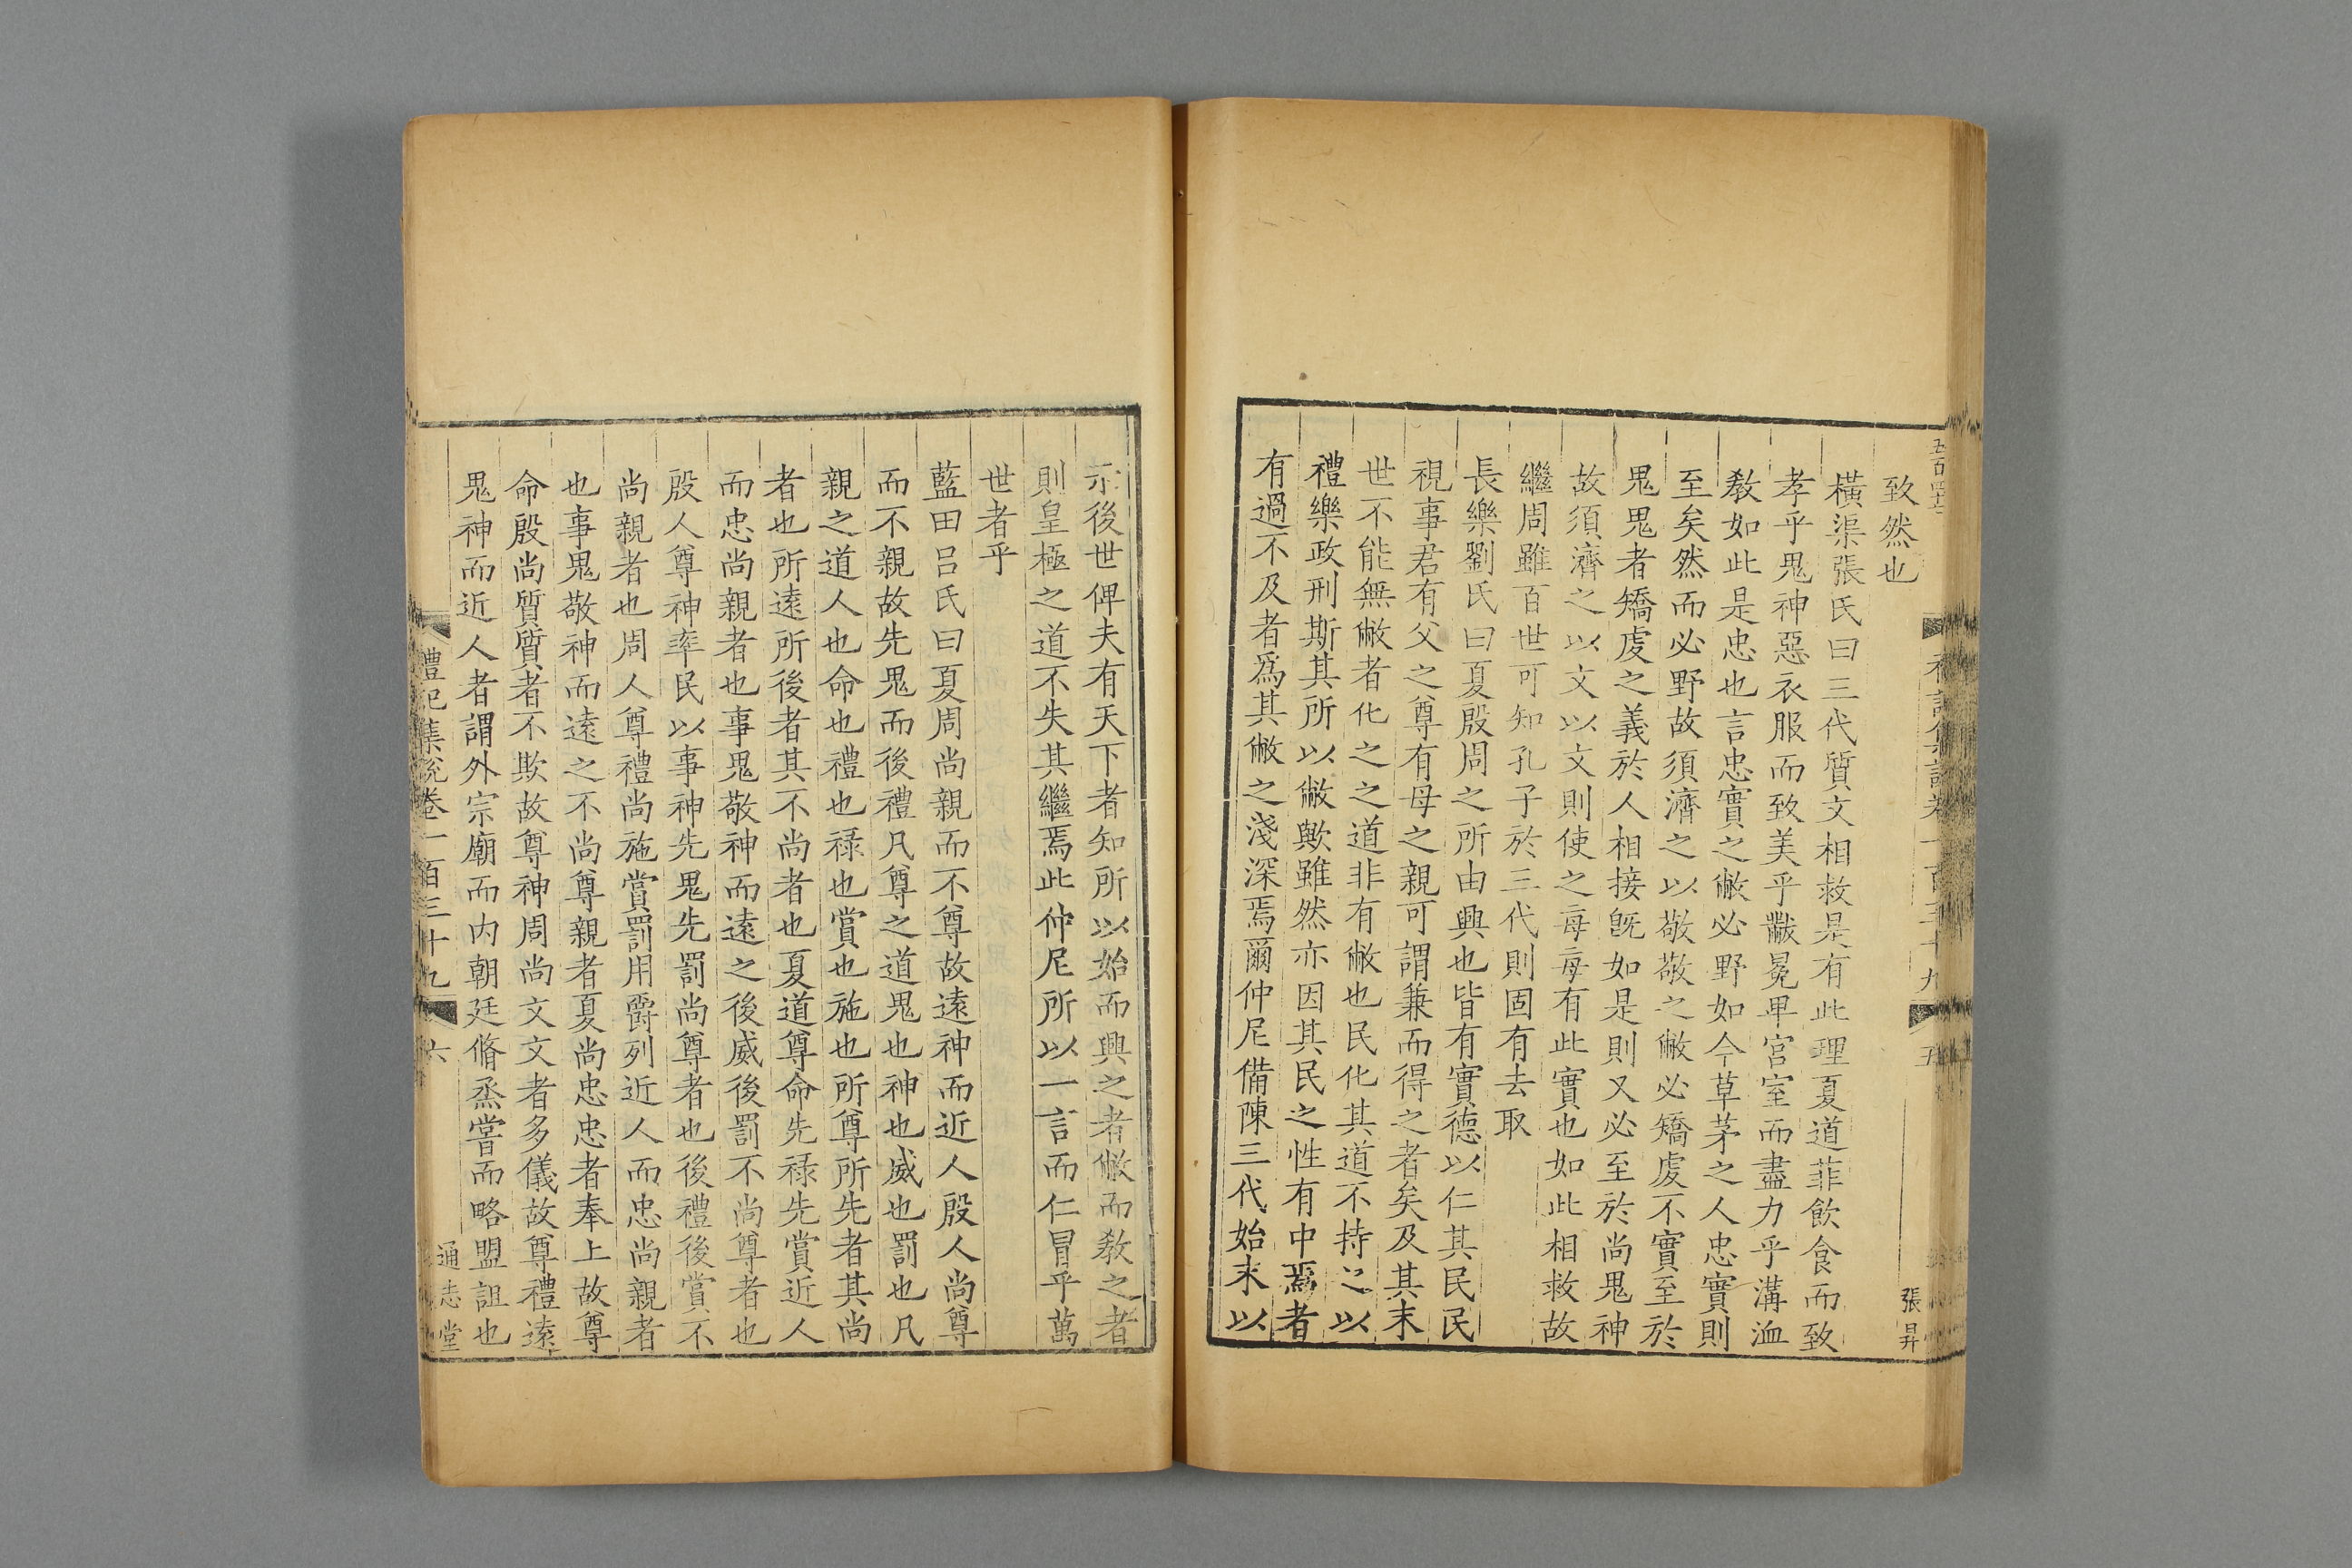 致然也
橫渠張氏曰三代質文相救是有此理夏道菲飲食而致
孝乎鬼神惡衣服而致美乎黻冕卑宮室而盡力乎溝洫
敎如此是忠也言忠實之敝必野如今草茅之人忠實則
至矣然而必野故須濟之以敬敬之敝必矯虔不實至於
鬼鬼者矯虔之義於人相接旣如是則又必至於尚鬼神
故須濟之以文以文則使之每每有此實也如此相救故
繼周雖百世可知孔子於三代則固有去取
長樂劉氏曰夏殷周之所由興也皆有實德以仁其民民
視事君有父之尊有母之親可謂兼而得之者矣及其末
世不能無敝者化之之道非有敝也民化其道不持之以
禮樂政刑斯其所以敝歟雖然亦因其民之性有中焉者
有過不及者爲其敝之淺深焉爾仲尼備陳三代始末以
張昇
示後世俾夫有天下者知所以始而興之者敝而敎之者
則皇極之道不失其繼焉此仲尼所以一言而仁冒乎萬
世者乎
藍田呂氏曰夏周尚親而不尊故遠神而近人殷人尚尊
而不親故先鬼而後禮凡尊之道鬼也神也威也罰也凡
親之道人也命也禮也祿也賞也施也所尊所先者其尚
者也所遠所後者其不尚者也夏道尊命先祿先賞近人
而忠尚親者也事鬼敬神而遠之後威後罰不尚尊者也
殷人尊神率民以事神先鬼先罰尚尊者也後禮後賞不
尚親者也周人尊禮尚施賞罰用爵列近人而忠尚親者
也事鬼敬神而遠之不尚尊親者夏尚忠忠者奉上故尊
命殷尚質質者不欺故尊神周尚文文者多儀故尊禮遠
鬼神而近人者謂外宗廟而内朝廷脩烝嘗而略盟詛也
禮記集說卷一百三十九 六
通志堂